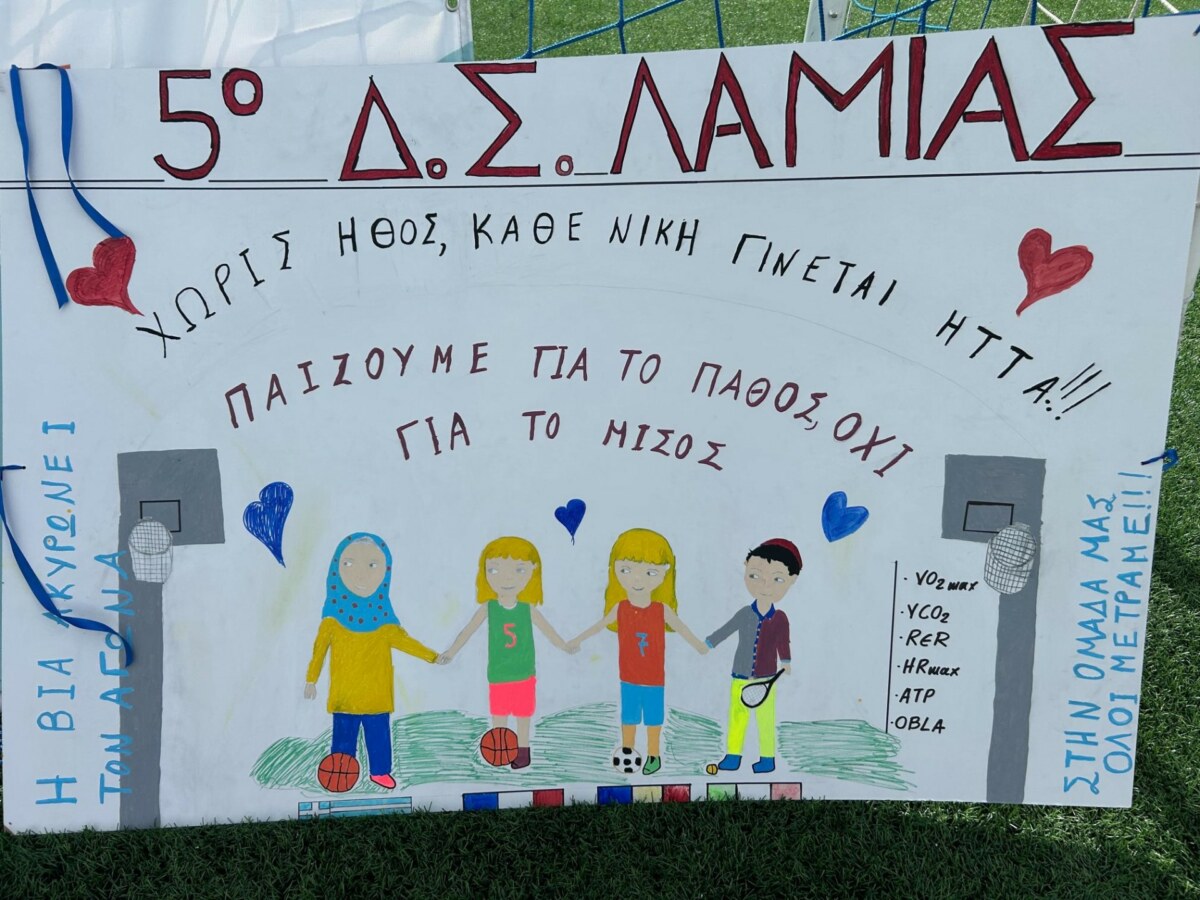 5º Δ.Σ. ΛΑΜΙΑΣ
ΧΩΡΙΣ ΗΘΟΣ, ΚΑΘΕ ΝΙΚΗ ΓΙΝΕΤΑΙ ΗΤΤΑ..!!!
ΠΑΙΖΟΥΜΕ ΓΙΑ ΤΟ ΠΑΘΟΣ, ΟΧΙ
ΓΙΑ ΤΟ ΜΙΣΟΣ
Η ΒΙΑ ΑΚΥΡΩΝΕΙ
ΤΟΝ ΑΓΩΝΑ
5
7
· VO₂max
· VCO₂
· RER
· HRmax
· ATP
· OBLA
ΣΤΗΝ ΟΜΑΔΑ ΜΑΣ
ΟΛΟΙ ΜΕΤΡΑΜΕ!!!